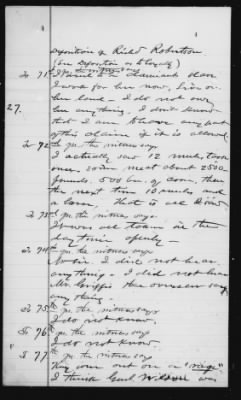 Deposition of Richd Robertson
(See Deposition as to Loyalty)
To 71st
I was Claimants slave
I work for her now, live on
her land - I do not owe
27. her anything - I dont know
that I am to have any part
of this claim if it is allowed.
To 72 qu. the witness says
I actually saw 12 mules, two
oxen, some meat about 2500
pounds. 500 bu of corn, then
the next time 10 mules and
a horse, that is all I saw
To 73d qu. the witness says
It was all taken in the
day time openly -
To 74th qu. the witness says
No sir. I did not hear
anything - I did not hear
Mr Griffis the overseer say
any thing.
To 75th qu. the witness says
I do not know.
To 76th qu. the witness says
I do not know
To 77th qu. the witness says
They were out on a "raige"
I think Genl Wilson was